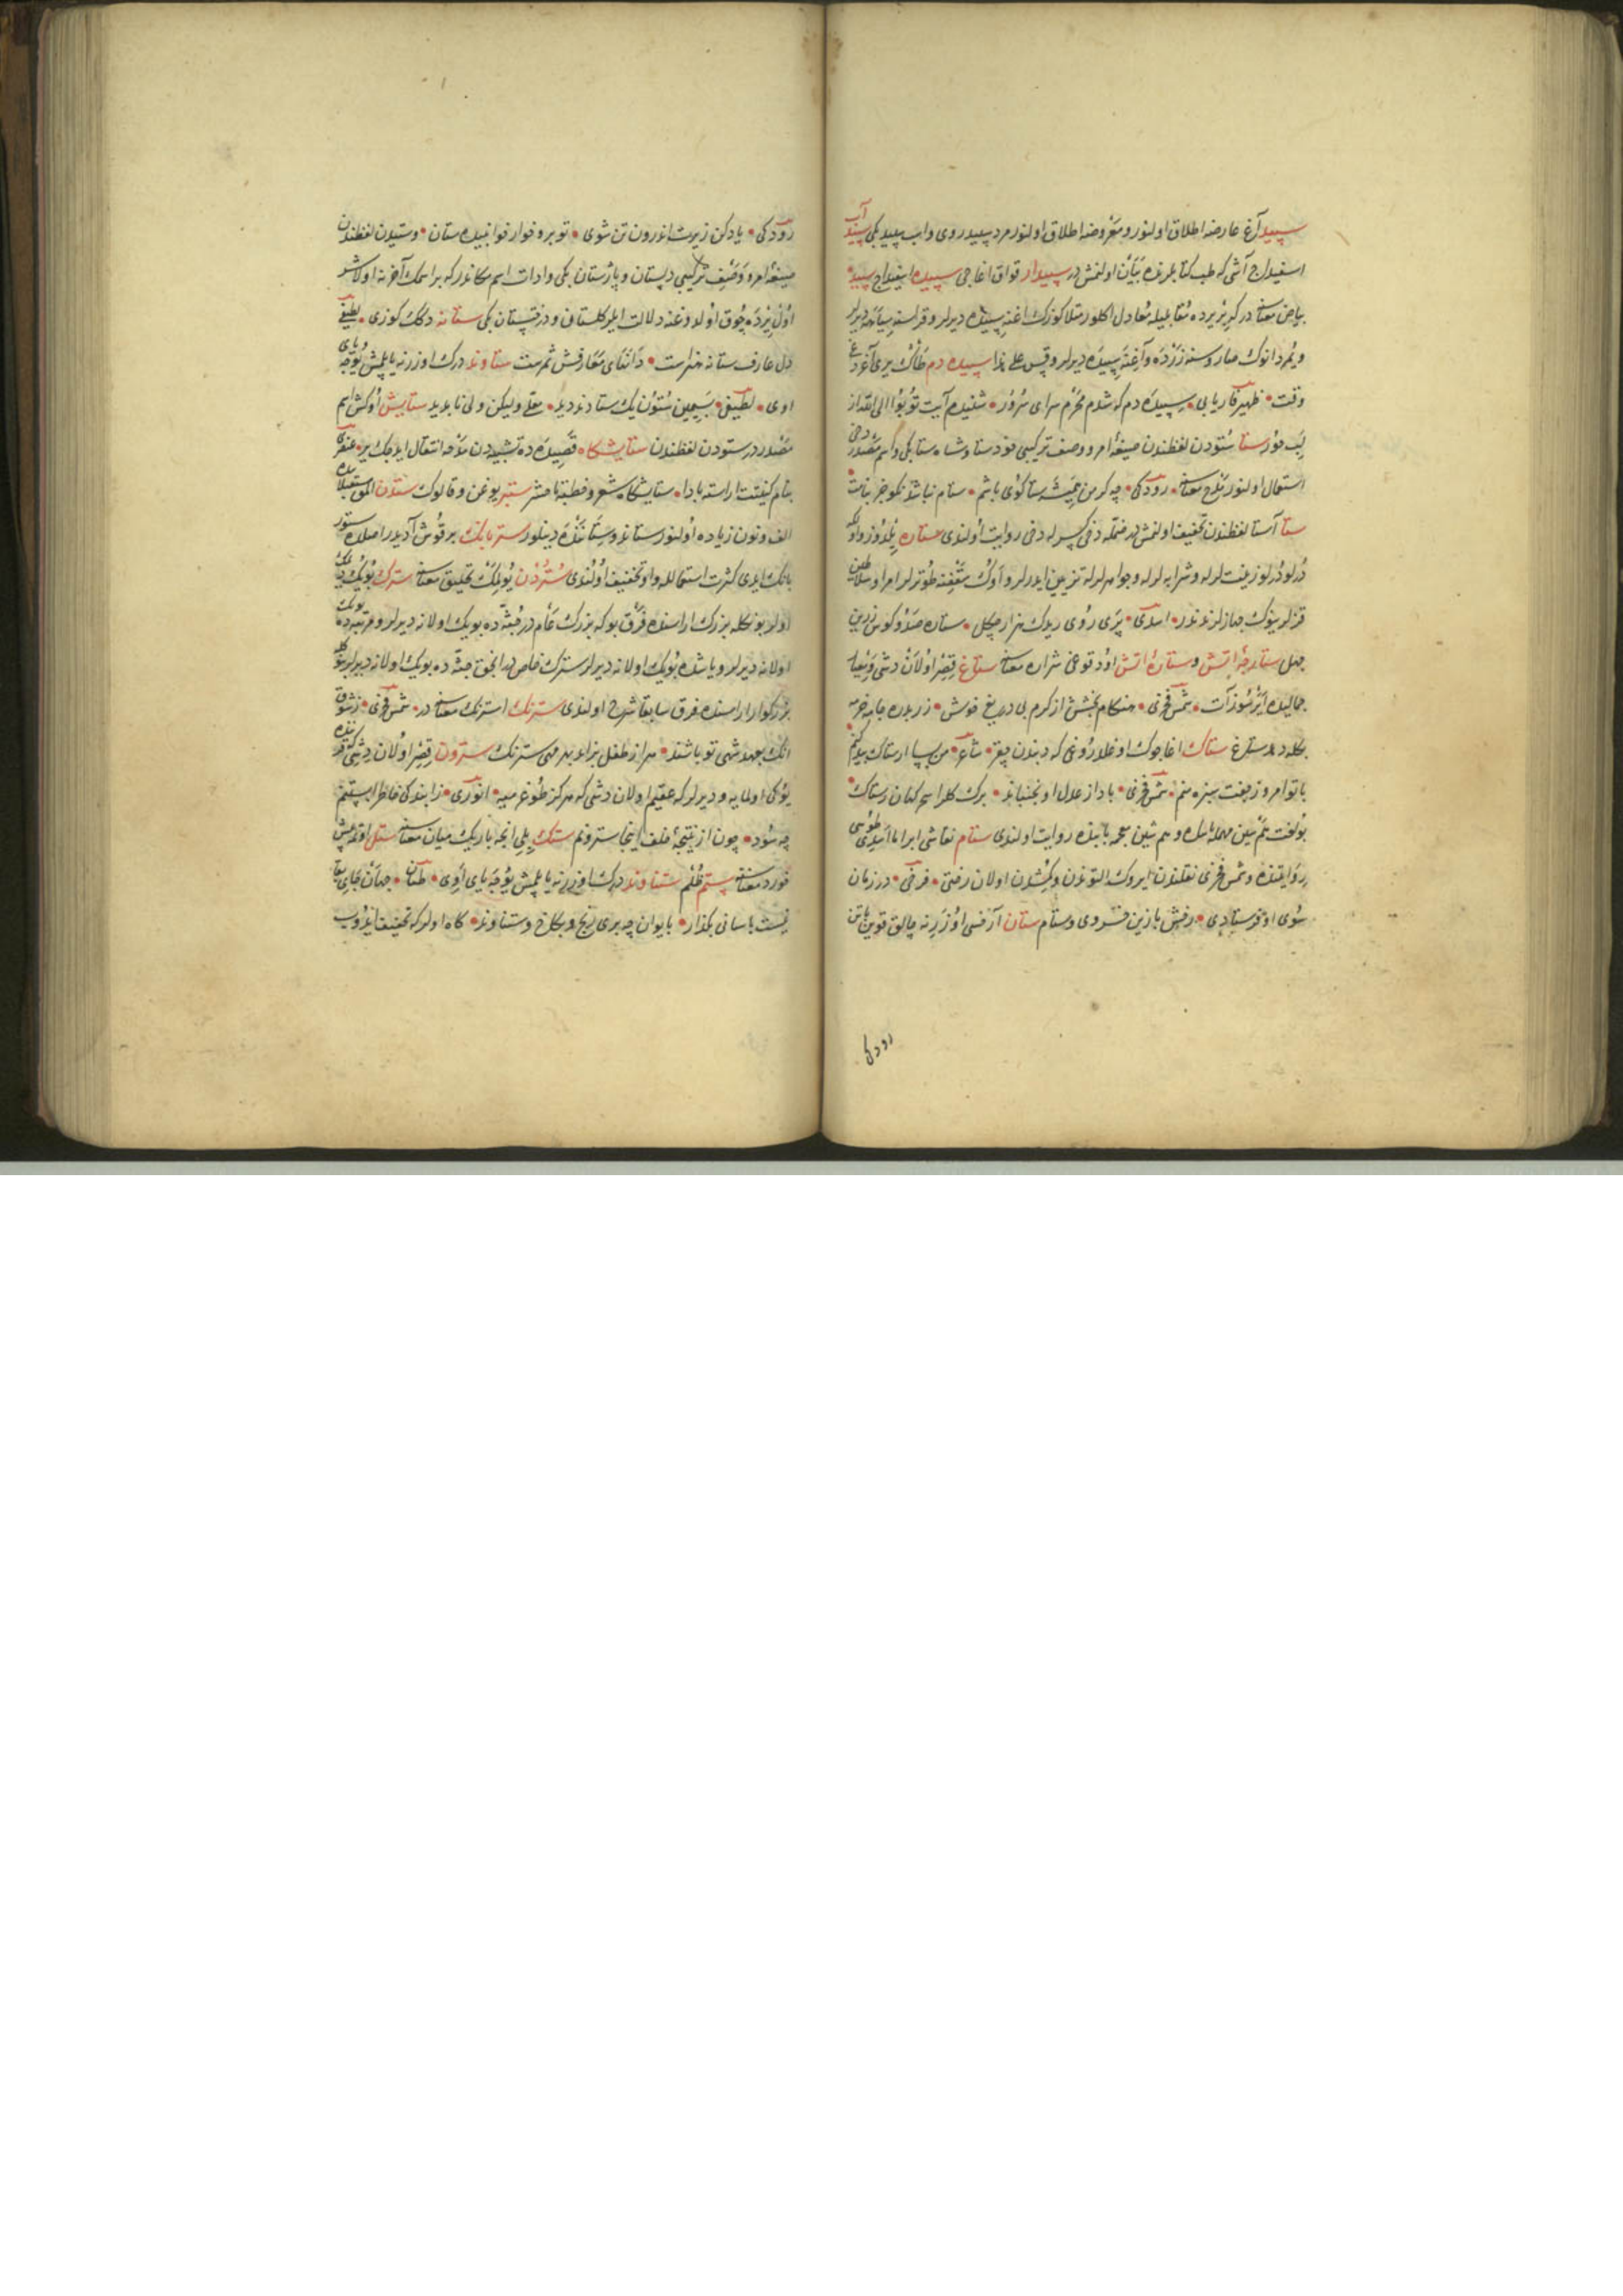 سپید آغ عارضه اطلاق اولنور و معروضه اطلاق اولنور مرد سپید روی و اب سپید بکی سپید آب
اسفیداج آشی که طب کتابلرنده بیان اولنمش در سپیدار قواق اغاجی سپیده اسفیداج سپیده
بیاض معناسنه در کریزیرده مقابلیله معادل اکلنور مثلا کوزک اغنه سپیده دیرلر و قراسنه سیاهه دیرلر
و یمردانوک صاروسنه زرده و آغنه سپیده دیرلر و قس علی هذا سپیده دم طاک یری آغردغی
وقت • ظهیر فاریابی • سپیده دم که شدم محرم سرای سرور • شنیدم آیت توبوا الی الله از
لب حور ستا ستودن لفظندن صیغه امر و وصف ترکیبی خود ستا و شاه ستا بکی و اسم مصدر دخی
استعمال اولنور مدح معناسنه • رودکی • چه کر من همیشه ستا کوی باشم • ستام نباشد نکو جز بنامت
ستا آستا لفظندن تخفیف اولنمش در ضمه دخی کسرله دخی روایت اولندی ستاره یلدوز و اول که
درلو درلو زینت لرله و شرابه لرله و جواهرلرله تزیین ایدرلر و اوک سقفنه طوترلر امرا و سلاطین
قزلرینوک جهازلرندندر • اسدی • پری روی ریدک هزار چکل • ستاره صد و کوس زرین
چهل ستارچه آتش و ستاره آتش اود توخی شراره معناسنه ستاغ قصر اولان دشی
جمالیده ایرسوز آت • شمس فخری • هنکام بخشش از کرم بی دریغ خوش • زر بدره جامه خرمه
کله دهد ستاغ ستاک اغاجوک اوغلاروغی که دبندن چقر • شاعر • من بسپا از ستاک بید کنم
با تو امروز جفت سبزه منم • شمس فخری • باد از عدل او نجنباند • برک کلرا سحر کهان ز ستاک •
بو لغت هم سین مهمله بابنده و هم شین معجمه بابنده روایت اولندی ستام نعاشی ابرا اما اسدی طوسی
روایتنده و شمس فخری نقلندن ایروک التوندن و کمشدن اولان رختی • فرخی • در زمان
سوی او فرستادی • رخش با زین خسروی و ستام ستان آرقسی اوزرنه چالق قوین یاتن
رودکی
رودکی • یاد کن زیرت اندرون تن شوی • تو برو خوار خوابنیده ستان • و ستیدن لفظندن
صیغه امر و وصف ترکیبی دلستان و باژستان بکی و ادات اسم مکاندر که بر اسمک آخرنه اولاشر
اول نرده چوق اولدوغنه دلالت ایلر کلستان و درختستان بکی ستانه درکک کوزی • لطیفی
دل عارف ستانه هنرست • دانای معارفش ثمرست ستاوند درک اوزرنه یاپلمش یوجه و یای
اوی • لطیفی • بسیمین ستون یک ستاوند دید • معلی ولیکن ولی نابدید ستایش اوکش اسم
مصدردر ستودن لفظندن ستایشکاه قصیده ده تشبیدن مدحه انتقال ایدجک یر • عنصری
بنام کنیتت اراسته بادا • ستایشکاه شعر و خطبه تا حشر ستبر یوغن و قالوک ستدن المق مستقبلده
الف و نون زیاده اولنور ستاند و ستاننده دینلور ستربانک بر قوش آدیدر اصلده ستور
بانک ایدی کثرت استعماللە واو تخفیف اولندی ستردن یولمک تحلیق معناسنه سترک بویک دیمک
اولر بونکله بزرک اراسنده فرق بو که بزرک عام در جثه ده بویک اولانه دیرلر و مرتبه ده بویک
اولانه دیرلر و یاشده بویک اولانه دیرلر سترک خاص در انجق جثه ده بویک اولانه دیرلر بونکله
بزرکوار اراسنده فرق سابقا شرح اولندی سترنک استرنک معناسنه در • شمس فخری • ز شوق
انک بعهد شهی تو باشند • هر از طفل بزاید بهر مهی سترنک سترون قصر اولان دشی کنده
یوکی اولمایه و دیرلر که عقیم اولان دشی که هرکز طوغرمیه • انوری • زایند کی خاطر البستم
چه سود • چون از نتیجه خلف اینجا سترونم ستک بیلی انجه باریک میان معناسنه ستل
خورد معناسنه ستم ظلم ستناوند درک اوزرنه یاپلمش یوجه یای اوی • طیان • جهان جای بقا
نیست باسانی بکذار • بایوان چه بری رنج و بکاخ و ستناوند • کاه اولر که تخفیف ایدوب